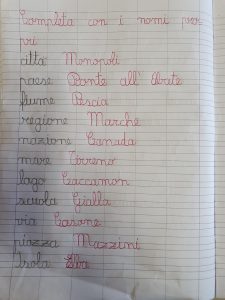 Completa con i nomi pro
pri
città Monopoli
paese Ponte all' Abate
fiume Pescia
regione Marche
nazione Canada
mare Tirreno
lago Caccamon
scuola Gialla
via Casone
piazza Mazzini
Isola Elba